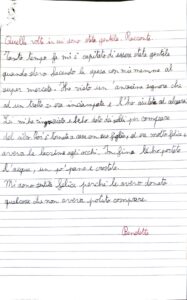 Quella volta in cui sono stata gentile. Racconto.
Tanto tempo fa mi è capitato di essere stata gentile
quando stavo facendo la spesa con mia mamma al
super mercato. Ho visto un anziana signora che
ad un tratto era inciampata e l'ho aiutata ad alzarsi.
Lei mi ha ringraziato e le ho dato dei soldi per comprare
del cibo. Poi è tornata a casa con suo figlio, ed era molto felice e
aveva le lacrime agli occhi. In fine le ho portato
l'acqua, un po' pane e crostata.
Mi sono sentita felice perché le avevo donato
qualcosa che non aveva potuto comprare.
Benedetta